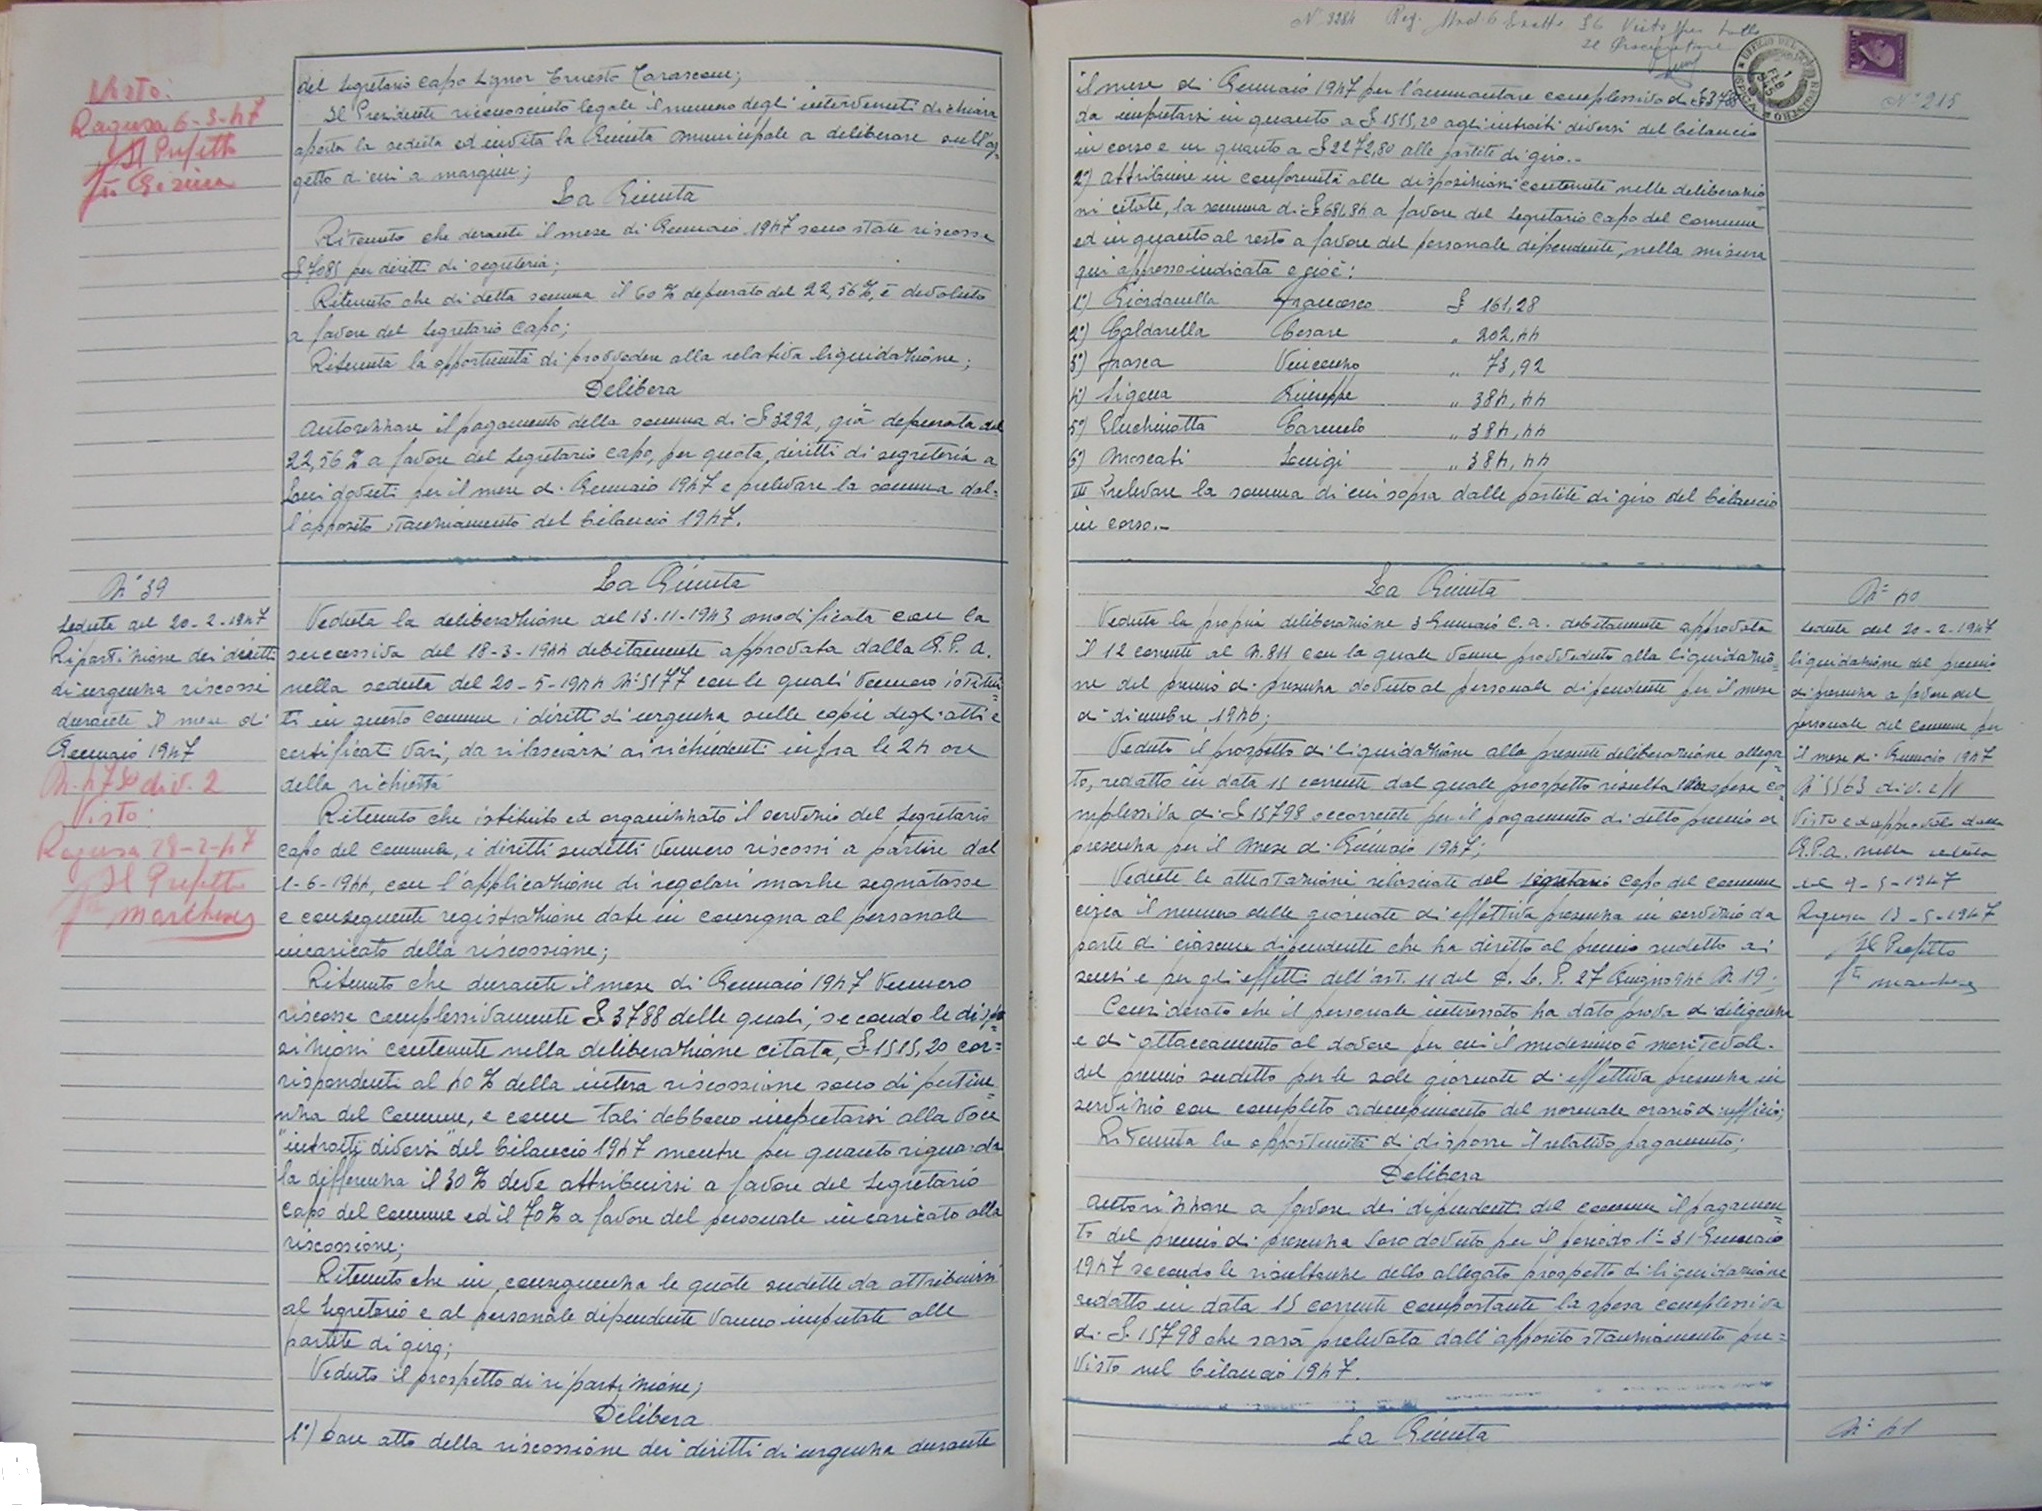 Visto:
Ragusa 6-3-47
Il Prefetto
del Segretario Capo Signor Ernesto
Il Presidente riconosciuto legale il numero degli intervenuti dichiara
aperta la seduta ed invita la Giunta Municipale a deliberare sull'og=
getto di cui a margine;
La Giunta
Ritenuto che durante il mese di Gennaio 1947 sono state riscosse
£ 7085 per diritti di segreteria;
Ritenuto che di detta somma il 60% depurato del 22,56%, è devoluto
a favore del Segretario Capo;
Ritenuta la opportunità di provvedere alla relativa liquidazione;
Delibera
Autorizzare il pagamento della somma di £ 3292, già depurata del
22,56% a favore del Segretario Capo, per quota diritti di segreteria a
Lui dovuti per il mese di Gennaio 1947 e prelevare la somma dal=
l'apposito stanziamento del bilancio 1947.
N° 39
Seduta del 20-2-1947
Ripartizione dei diritti
di urgenza riscossi
durante il mese di
Gennaio 1947
div. 2
Visto:
Ragusa 28-2-47
Il Prefetto
La Giunta
Veduta la deliberazione del 13-11-1943 modificata con la
successiva del 18-3-1944 debitamente approvata dalla G.P.A.
nella seduta del 20-5-1944 N° 5177 con le quali vennero istitui=
ti in questo Comune i diritti di urgenza sulle copie degli atti e
certificati vari, da rilasciarsi ai richiedenti infra le 24 ore
della richiesta
Ritenuto che istituito ed organizzato il servizio del Segretario
Capo del Comune, i diritti sudetti vennero riscossi a partire dal
1-6-1944, con l'applicazione di regolari marche segnatasse
e conseguente registrazione date in consegna al personale
incaricato della riscossione;
Ritenuto che durante il mese di Gennaio 1947 vennero
riscosse complessivamente £ 3788 delle quali, secondo le dispo=
sizioni contenute nella deliberazione citata, £ 1515,20 cor=
rispondenti al 40% della intera riscossione sono di pertine=
nza del Comune, e come tali debbono imputarsi alla voce
"introiti diversi" del bilancio 1947 mentre per quanto riguarda
la differenza il 30% deve attribuirsi a favore del Segretario
Capo del Comune ed il 70% a favore del personale incaricato alla
riscossione;
Ritenuto che in conseguenza le quote sudette da attribuirsi
al Segretario e al personale dipendente vanno imputate alle
partite di giro;
Veduto il prospetto di ripartizione;
Delibera
1°) Dare atto della riscossione dei diritti di urgenza durante
N° 3284
N° 215
il mese di Gennaio 1947 per l'ammontare complessivo di £ 3788
da imputarsi in quanto a £ 1515,20 agli introiti diversi del bilancio
in corso e in quanto a £ 2272,80 alle partite di giro.-
2°) Attribuire in conformità alle disposizioni contenute nelle deliberazio=
ni citate, la somma di £ 681,84 a favore del Segretario Capo del Comune
ed in quanto al resto a favore del personale dipendente, nella misura
qui appresso indicata e cioè:
1°) Giordanella Francesco £ 161,28
2°) Caldarella Cesare " 202,44
3°) Frasca Vincenzo " 73,92
4°) Sigona Giuseppe " 384,44
5°) Carmelo " 384,44
6°) Moscati Luigi " 384,44
III Prelevare la somma di cui sopra dalle partite di giro del bilancio
in corso.-
La Giunta
Veduta la propria deliberazione 3 Gennaio c.a. debitamente approvata
il 12 corrente al N. 811 con la quale venne provveduto alla liquidazio=
ne del premio di presenza dovuto al personale dipendente per il mese
di dicembre 1946;
Veduto il prospetto di liquidazione alla presente deliberazione allega=
to, redatto in data 15 corrente dal quale prospetto risulta una spesa co=
mplessiva di £ 15798 occorrente per il pagamento di detto premio di
presenza per il mese di Gennaio 1947;
Vedute le attestazioni rilasciate del Segretario Capo del Comune
circa il numero delle giornate di effettiva presenza in servizio da
parte di ciascun dipendente che ha diritto al premio sudetto ai
sensi e per gli effetti dell'art. 11 del D.L.P. 27 Giugno 946 N. 19;
Considerato che il personale interessato ha dato prova di diligenza
e di attaccamento al dovere per cui il medesimo è meritevole
del premio sudetto per le sole giornate di effettiva presenza in
servizio con completo adempimento del normale orario di ufficio;
Ritenuta la opportunità di disporre il relativo pagamento;
Delibera
Autorizzare a favore dei dipendenti del Comune il pagamen=
to del premio di presenza loro dovuto per il periodo 1°-31 Gennaio
1947 secondo le risultanze dello allegato prospetto di liquidazione
redatto in data 15 corrente comportante la spesa complessiva
di £ 15798 che sarà prelevata dall'apposito stanziamento pre=
visto nel bilancio 1947.
N° 40
Seduta del 20-2-1947
liquidazione del premio
di presenza a favore del
personale del Comune per
il mese di Gennaio 1947
N° 5563 div. 2/1
Visto ed approvato dalla
G.P.A. nella seduta
del 9-5-1947
Ragusa 13-5-1947
Il Prefetto
La Giunta
N° 41